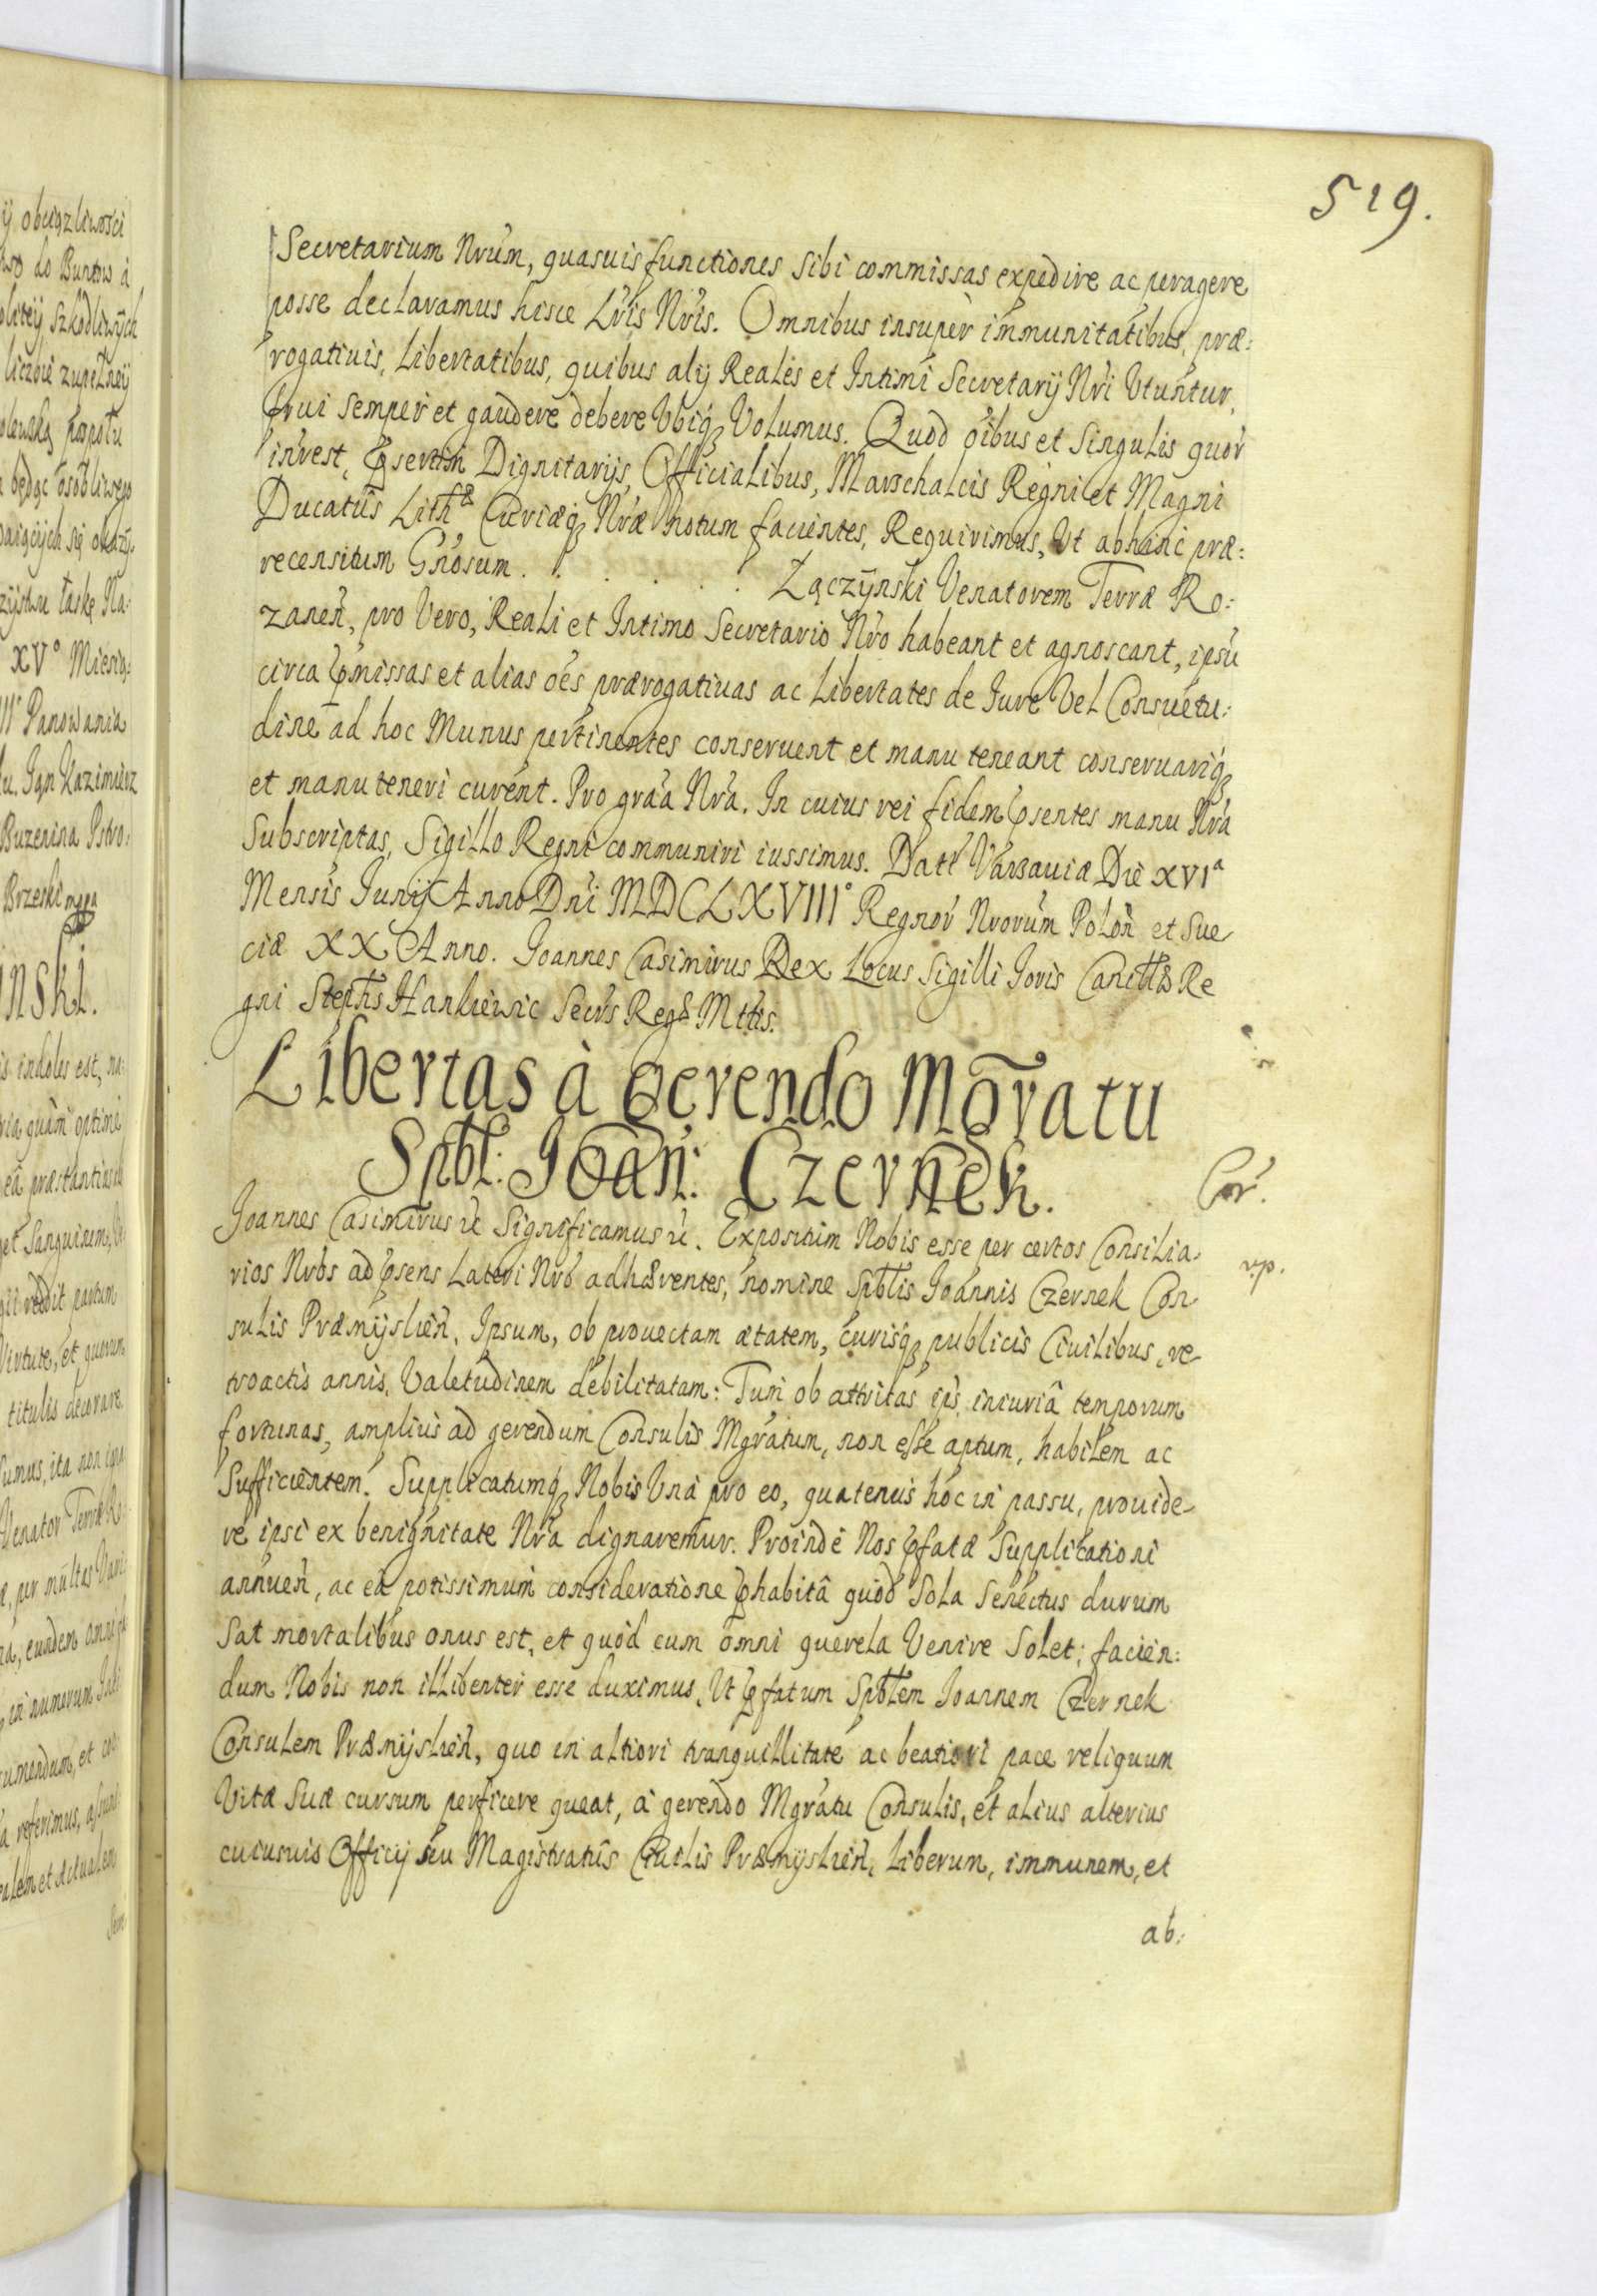 519.
Secretarium Nrum, quasuis functiones sibi commissas expedire ac peragere
posse declaramus hisce Lris Nris. Omnibus insuper immunitatibus, præ:
rogatiuis, Libertatibus, quibus alij Reales et Intimi Secretarij Nri Utuntur,
frui semper et gaudere debere Ubiq Volumus. Quod oibus et singulis quor
inrest, psertim Dignitarijs, Officialibus, Marschalcis Regni et Magni
Ducatus Lith Curiæq Nræ notum facientes, Requirimus, Ut abhinc præ:
recensitum Gnosum . . . . . Łączÿnski Venatorem Terræ Ro:
zanen, pro Vero, Reali et Intimo Secretario Nro habeant et agnoscant, ipsu
circa pmissas et alias oes prærogatiuas ac Libertates de Iure Vel Consuetu:
dine ad hoc Munus pertinentes conseruent et manu teneant conseruariq
et manu teneri curent. Pro graa Nra. In cuius rei fidem psentes manu Nra
Subscriptas, Sigillo Regni communiri iussimus. Datt Varsauiæ Die XVIa
Mensis Junij Anno Dni MDCLXVIII° Regnor Nrorum Polon et Sue
ciæ XX Anno. Joannes Casimirus Rex Locus Sigilli Joris Re
gni Stephs Hankiewic Secrs Reg Mttis.
Libertas à gerendo Mgratu
Spbl: Joan: Czernek.
Cor.
Joannes Casimirus &c Significamus &c. Expositum Nobis esse per certos Consilia
rios Nros ad psens Lateri Nro adhærentes, nomine Spblis Joannis Czernek Con
sulis Præmijslien, Ipsum, ob prouectam ætatem, curisq publicis Ciuilibus, re
troactis annis, Valetudinem debilitatam: Tum ob attritas ips iniuriâ temporum
fortunas, amplius ad gerendum Consulis Mgratum, non esse aptum, habilem ac
Sufficientem. Supplicatumq Nobis Una pro eo, quatenus hoc in passu, prouide
re ipsi ex benignitate Nra dignaremur. Proinde Nos pfatæ Supplicationi
annuen, ac ea potissimum consideratione phabitâ quod Sola Senectus durum
Sat mortalibus onus est, et quod cum omni querela Venire Solet; facien:
dum Nobis non illibenter esse duximus, Ut pfatum Spblem Joannem Czernek
Consulem Præmijslien, quo in altiori tranquillitate ac beatiori pace reliquum
Vitæ Suæ cursum perficere queat, à gerendo Mgratu Consulis, et alius alterius
cuiusuis Officij seu Magistratûs Ciuilis Præmijslien, Liberum, immunem, et
ab: